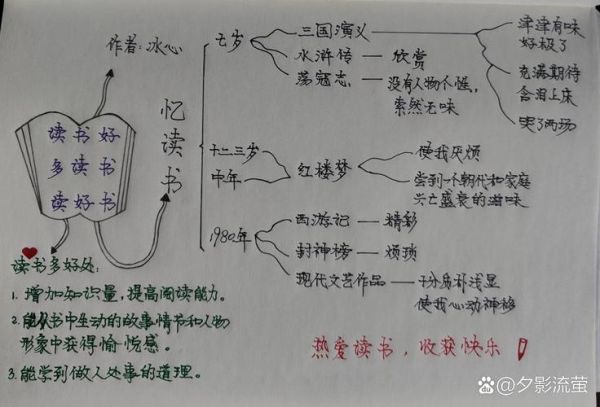 作者:冰心
读书好
多读书
读好书
忆读书
七岁
三国演义
津津有味
好极了
充满期待
含泪上床
哭了两场
水浒传
欣赏
荡寇志
没有人物个性,
索然无味
十二三岁
中年
红楼梦
使我厌烦
尝到一个朝代和家庭
兴亡盛衰的滋味
1980年
西游记
精彩
封神榜
烦琐
现代文艺作品
十分质朴浅显
使我心动神移
读书多好处:
1.增加知识量,提高阅读能力。
2.能从书中生动的故事情节和人物
形象中获得愉悦感。
3.能学到做人处事的道理。
热爱读书,收获快乐!
@夕影流萤